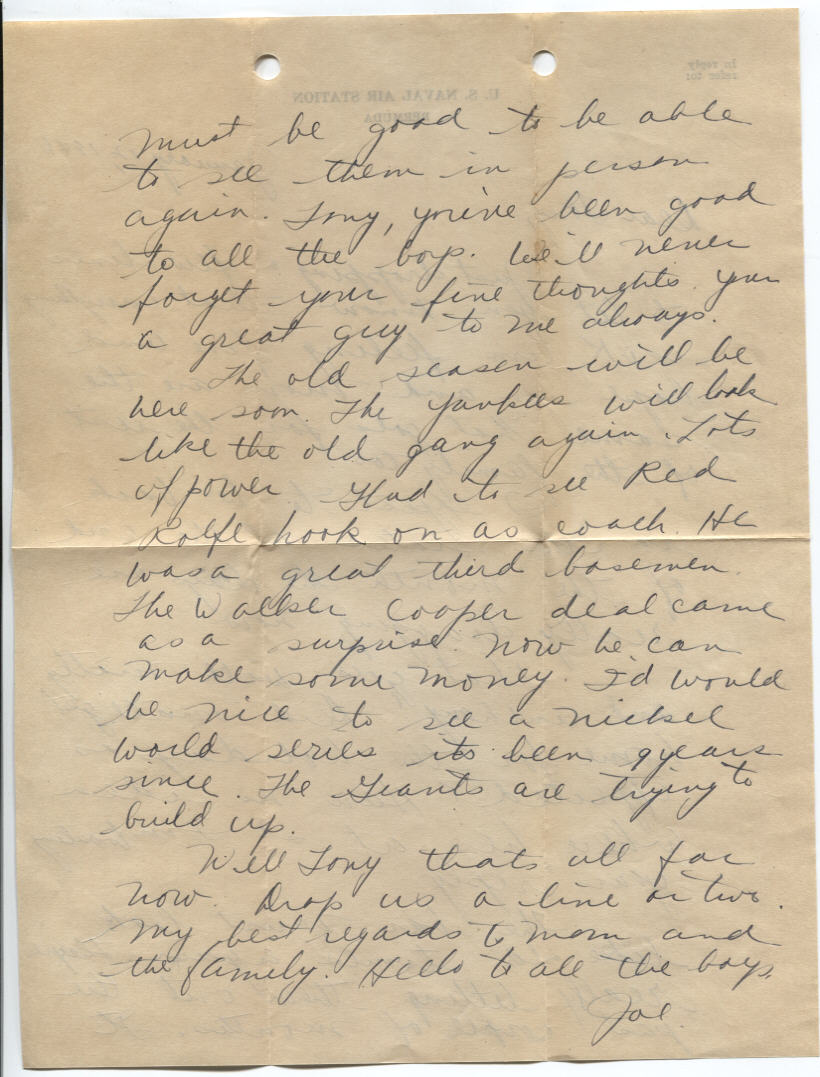 In reply
refer to:
U. S. NAVAL AIR STATION
BERMUDA
Must be good to be able
to see them in person
again. Tony, you've been good
to all the boys. We'll never
forget your fine thoughts. Your
a great guy to me always.
The old season will be
here soon. The Yankees will look
like the old gang again. Lots
of power. Glad to see Red
Rolfe hook on as coach. He
was a great third basemen.
The Walker Cooper deal came
as a surprise. Now he can
make some money. I'd would
be nice to see a nickel
world series its been 9 years
since. The Giants are trying to
build up.
Well Tony thats all for
now. Drop us a line or two.
My best regards to mom and
the family. Hello to all the boys.
Joe.